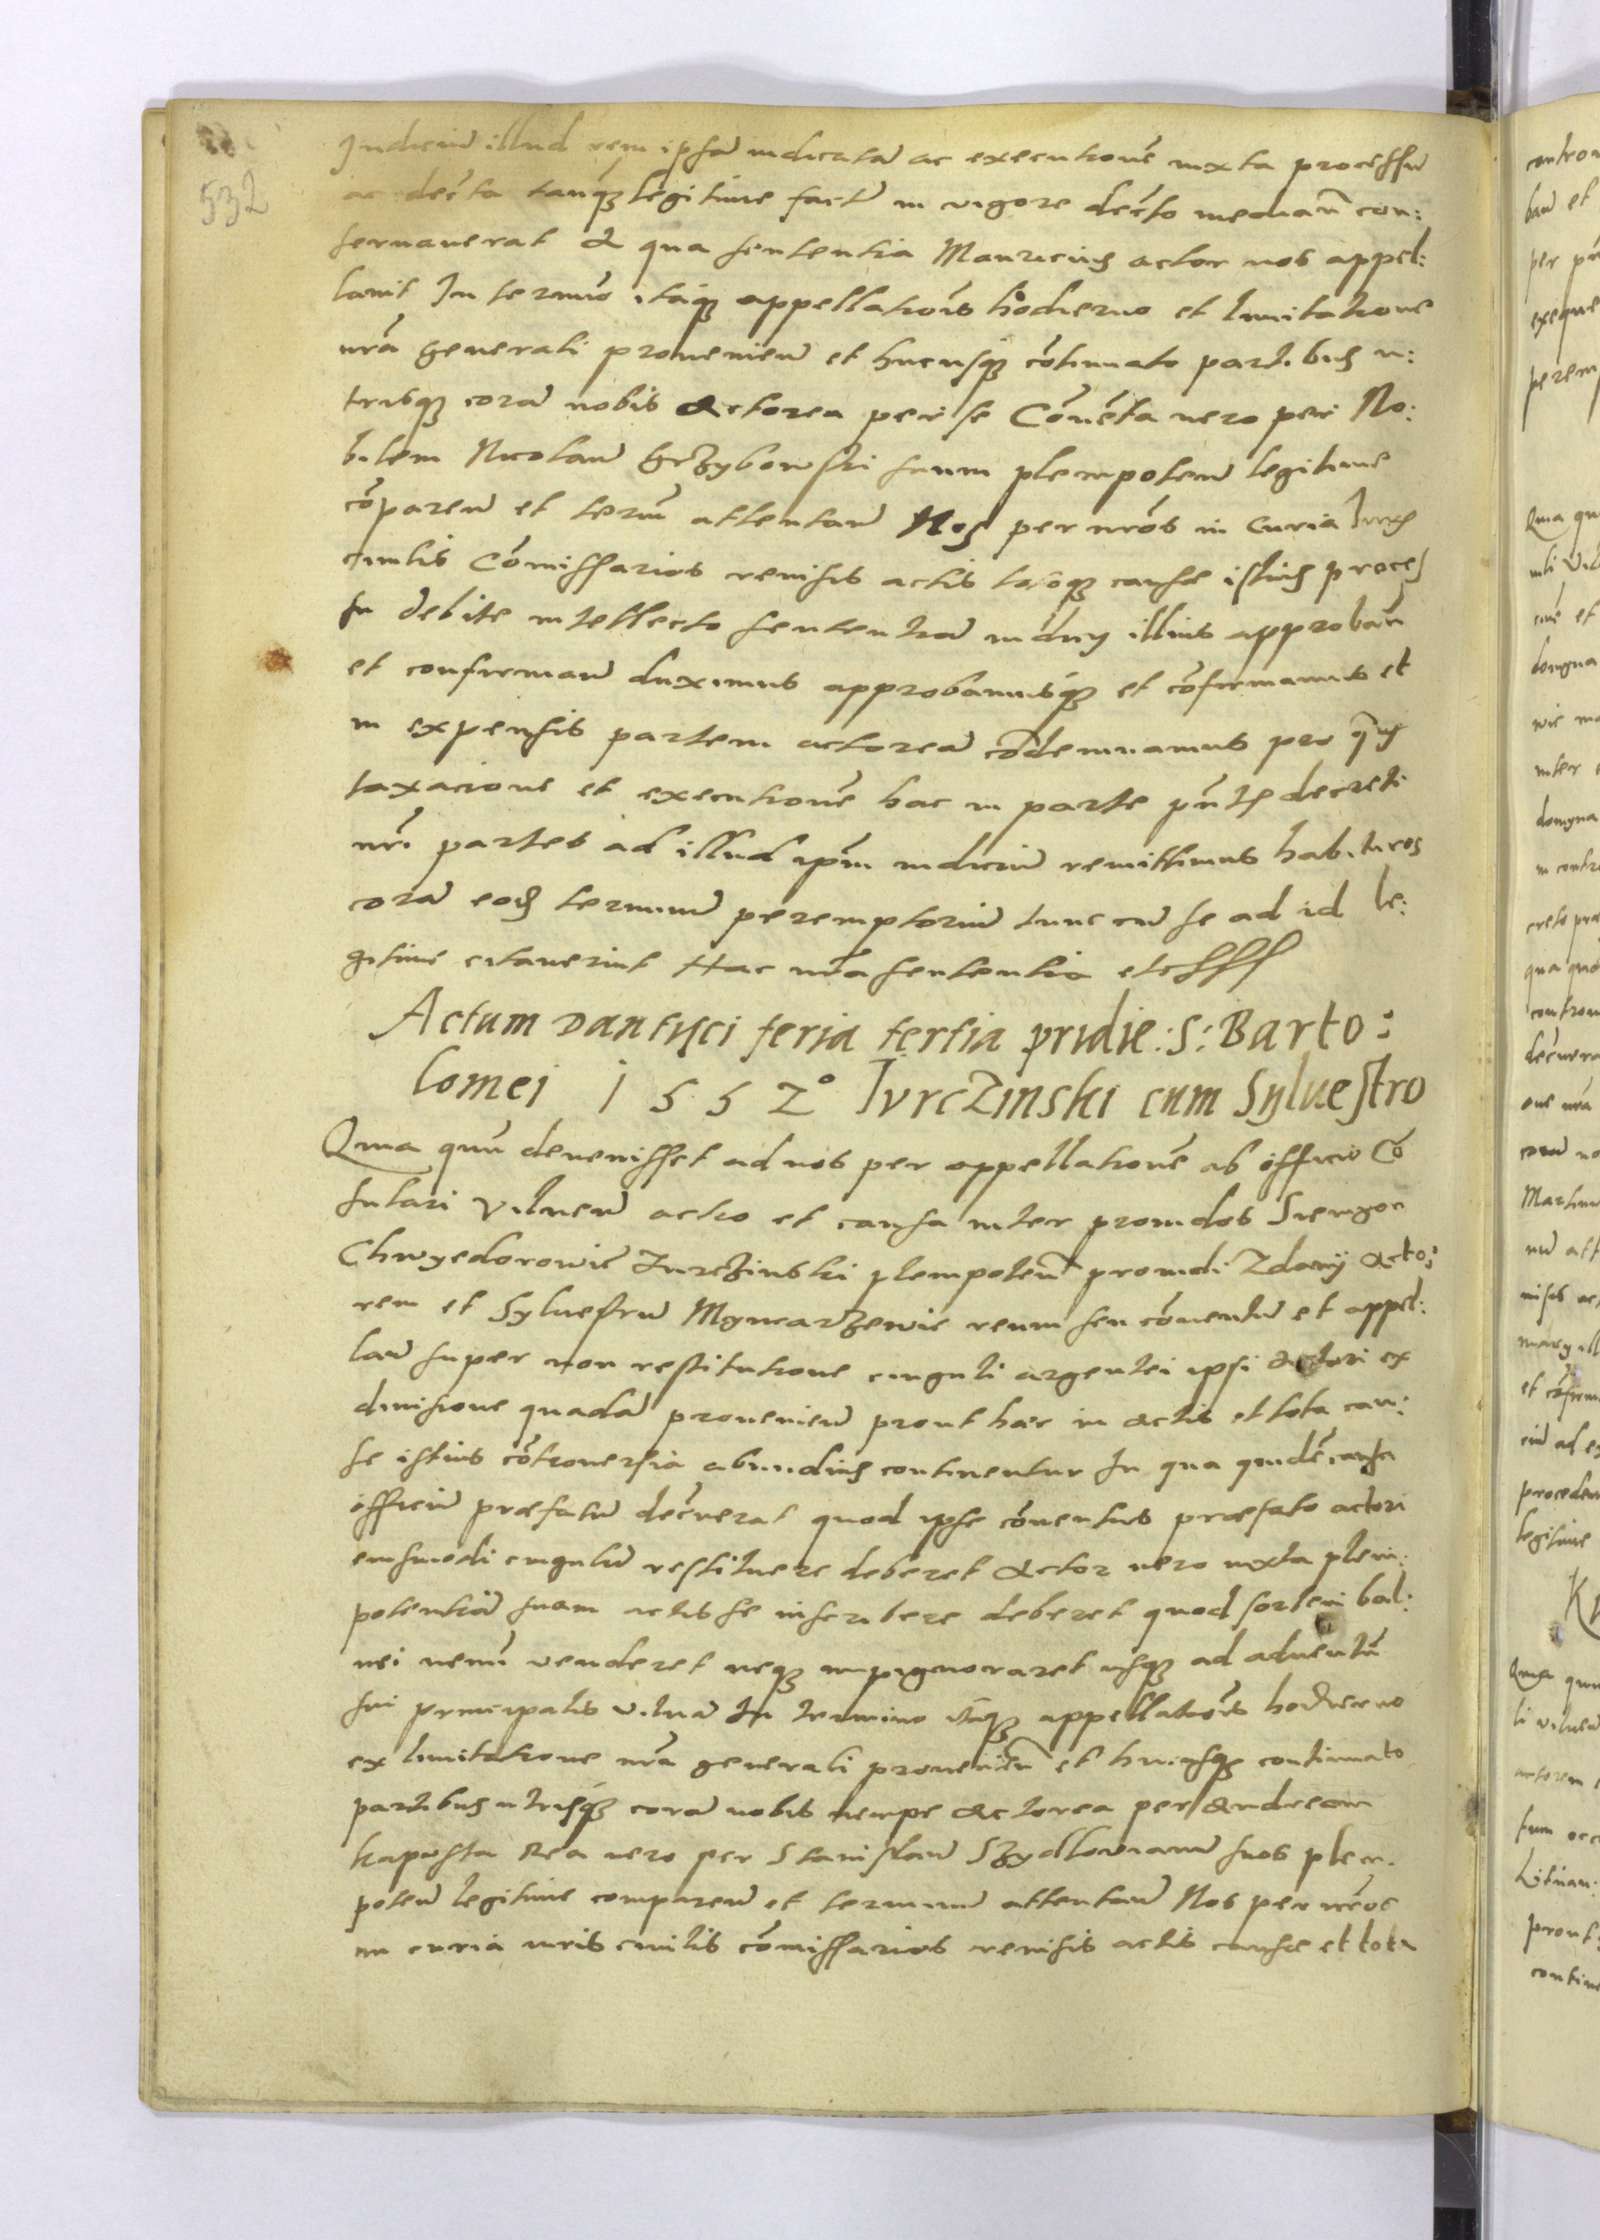 532
Iudiciũ illud rem ipsã iudicatã ac executionẽ iuxta processũ
ac decẽta tanq̃ legitime factũ in vigore decẽto mediañ con:
servaverat A qua sententia Mauricius actor nos appel:
lavit In termiõ itaq̃ appellationis hodierno et limitatione
nr̃a generali provenieñ et hucusq̃ cõtinuato partibus u:
trisq̃ corã nobis Actorea per se Cõvẽta vero per No:
bilem Nicolaũ Grzybowski suum plenipoteñ legitime
cõpareñ et termĩ attentañ Nos per nr̃os in Curia Iuris
civilis Cõmissarios revisis actis totoq̃ causae istius proces
su debite intellecto sententiã iudicÿ illius approbañ
et confirmañ duximus approbamusq̃ et cõfirmamus et
in expensis partem actoreã cõdemnamus pro quarũ
taxacione et executionẽ hac in parte pñtis decreti
nr̃i partes ad illud ipm̃ iudiciũ remittimus habituros
corã eodẽ terminũ peremptoriũ tunc cũ se ad id le:
gitime citaverint Hac nr̃a sententia etc
Actum Dantisci feria tertia pridie: S: Barto:
lomei 1552° Jurczinski cum Sylvestro
Quia quũ devenisset ad nos per appellationẽ ab officio Cõ
sulari Vilneñ actio et causa inter providos Siemyon
Chwyedorowic Jurczinski plenipoteñ providi Zdanÿ Acto:
rem et Sylvestrũ Mynarzewic reum seu cõventũ et appel:
lañ super non restitutione cinguli argentei ipsi Actori ex
divisione quadã provenieñ prout haec in actis et tota cau:
sae istius cõtroversia abundius continentur In qua quidẽ causa
officiũ praefatũ decrẽverat quod ipse cõventus praefato actori
eiusmodi cingulũ restituere deberet Actor vero iuxta pleni:
potentiã suam actis se inscribere deberet quod sortem bal:
nei nemĩ venderet neq̃ impignoraret usq̃ ad adventũ
sui principalis Vilnã In termino itaq̃ appellationis hodierno
ex limitatione nr̃a generali provenieñ et hucusq̃ continuato
partibus utrisq̃ corã nobis nempe Actorea per Andream
kapusta Rea vero per Stanislaũ Szydlovianũ suos pleni:
poteñ legitime compareñ et terminũ attentañ Nos per nr̃os
in curia iuris civilis cõmissarios revisis actis causae et tota